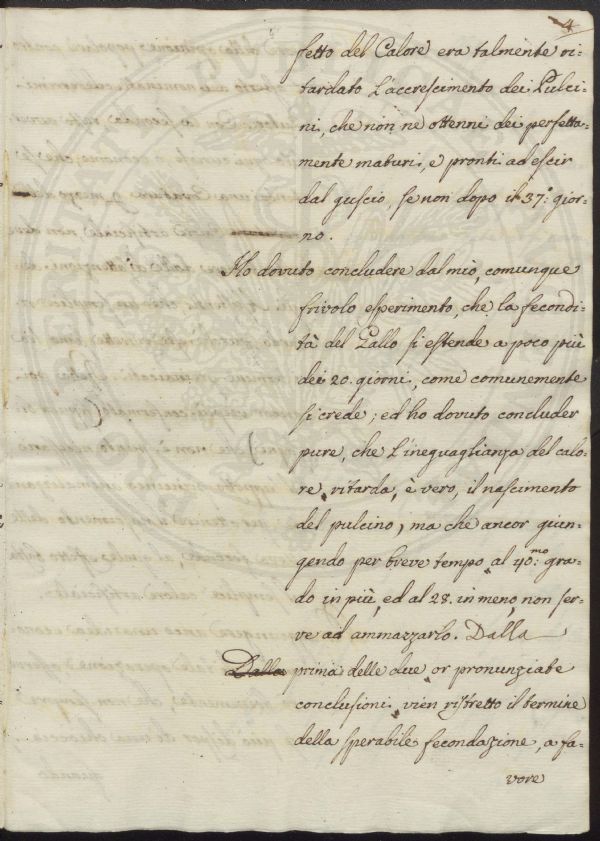 4
fetto del Calore era talmente ri:
tardato l'accrescimento dei Pulci:
ni, che non ne ottenni dei perfetta:
mente maturi, e pronti ad escir
dal guscio, se non dopo il 37.° gior:
no.
Ho dovuto concludere dal mio, comunque
frivolo esperimento, che la fecondi:
tà del Gallo si estende a poco più
dei 20. giorni, come comunemente
si crede; ed ho dovuto concluder
pure, che l'ineguaglianza del calo:
re, ritarda, è vero, il nascimento
del pulcino, ma che ancor giun:
gendo per breve tempo al 40.mo gra:
do in più, ed al 28. in meno, non ser:
ve ad ammazzarlo. Dalla
Dalla prima delle due or pronunziate
conclusioni vien ristretto il termine
della sperabile fecondazione, a fa:
vore